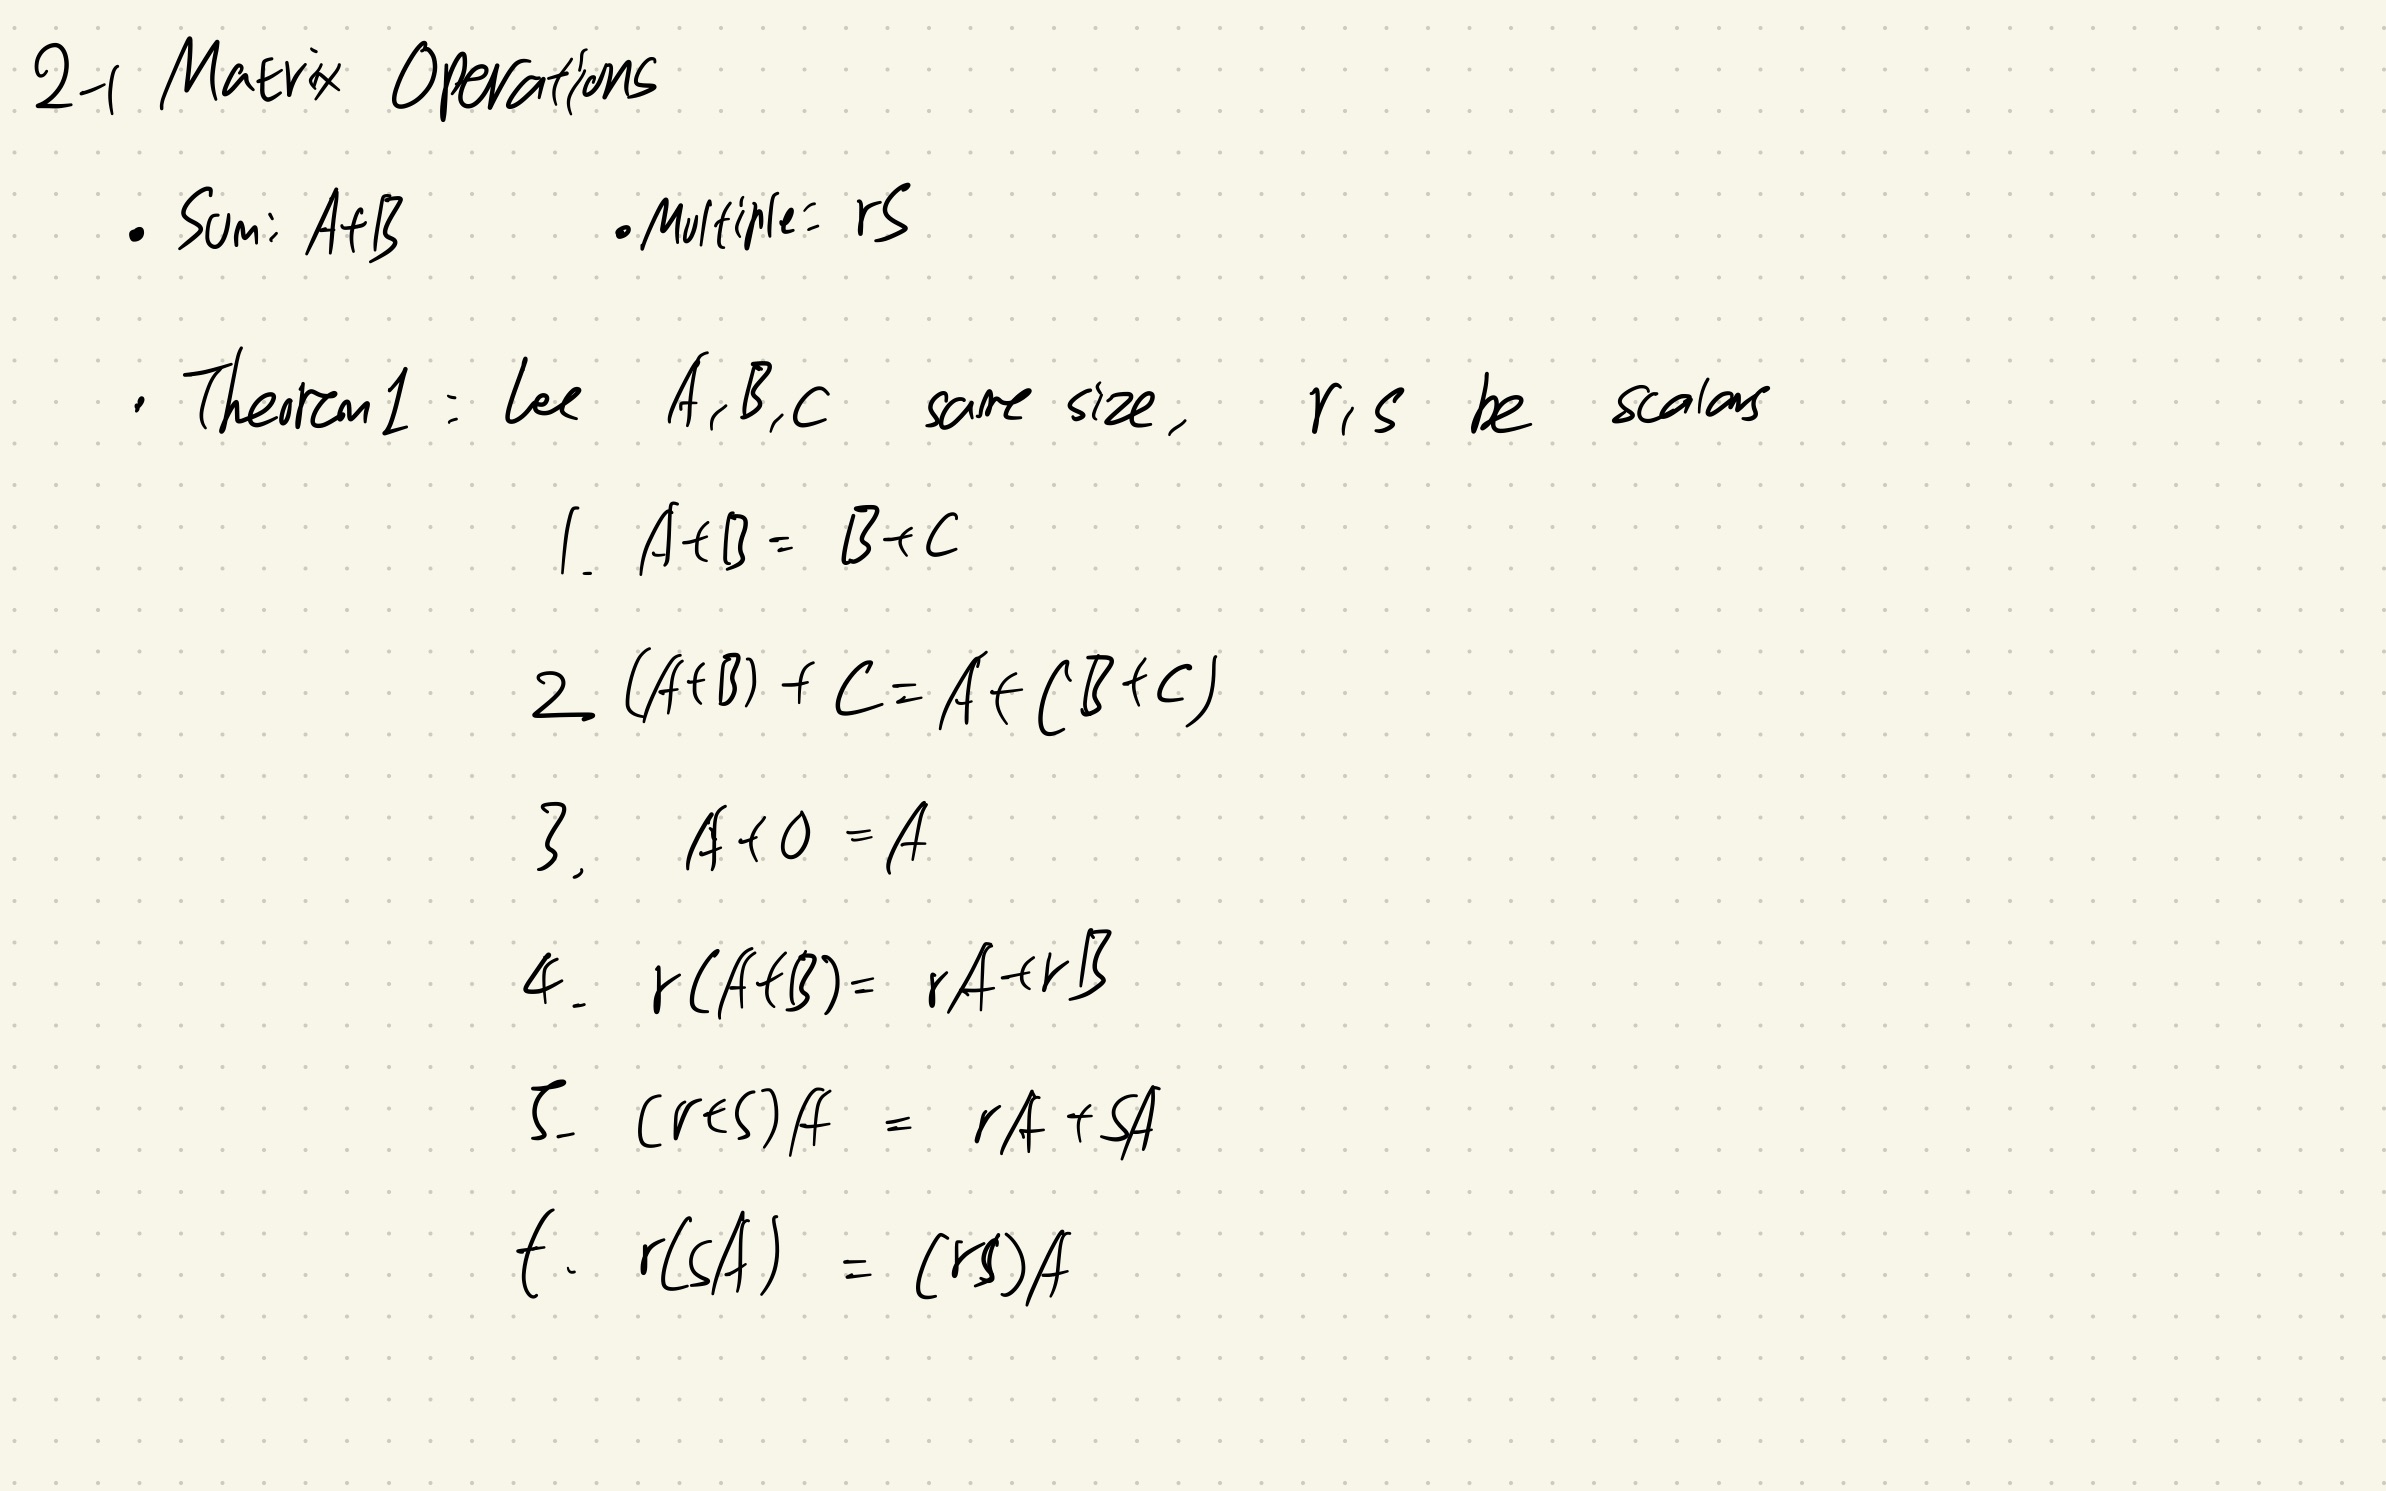 2-1 Matrix Operations
• Sum: A+B • Multiple: rS
• Theorem 1: Let A, B, C same size, r, s be scalars
1. A+B = B+C
2 (A+B) + C = A+(B+C)
3. A+0 = A
4. r(A+B) = rA+rB
5. (r+s)A = rA+sA
6. r(sA) = (rs)A